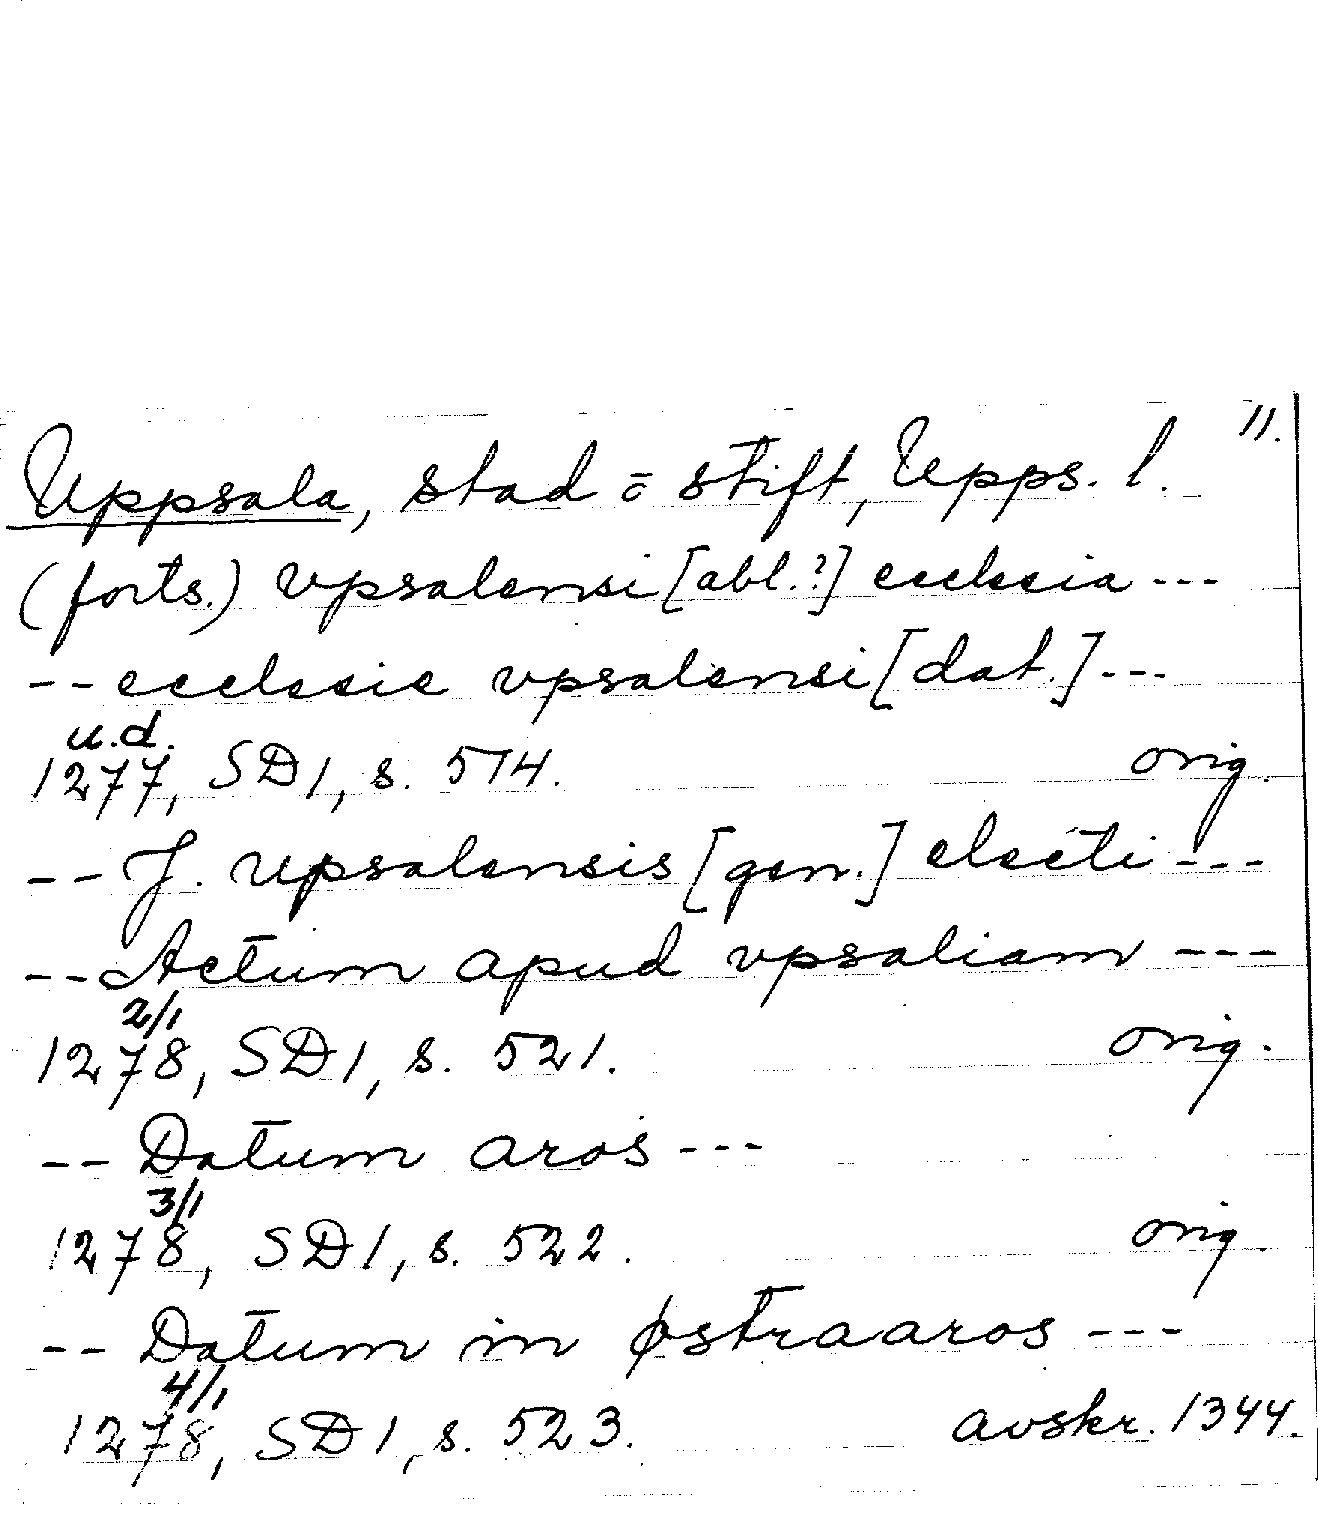 11.
Uppsala, stad o stift, Upps. l.
(forts.) vpsalensi [abl.?] ecclesia ---
-- ecclesie vpsalensi [dat.] ---
u.d.
1277, SD 1, s. 514. orig.
-- J. Upsalensis [gen.] electi ---
-- Actum apud vpsaliam ---
2/1
1278, SD 1, s. 521. orig.
-- Datum aros ---
3/1
1278, SD 1, s. 522. orig.
-- Datum in østraaros ---
4/1
1278, SD 1, s. 523. avskr. 1344.